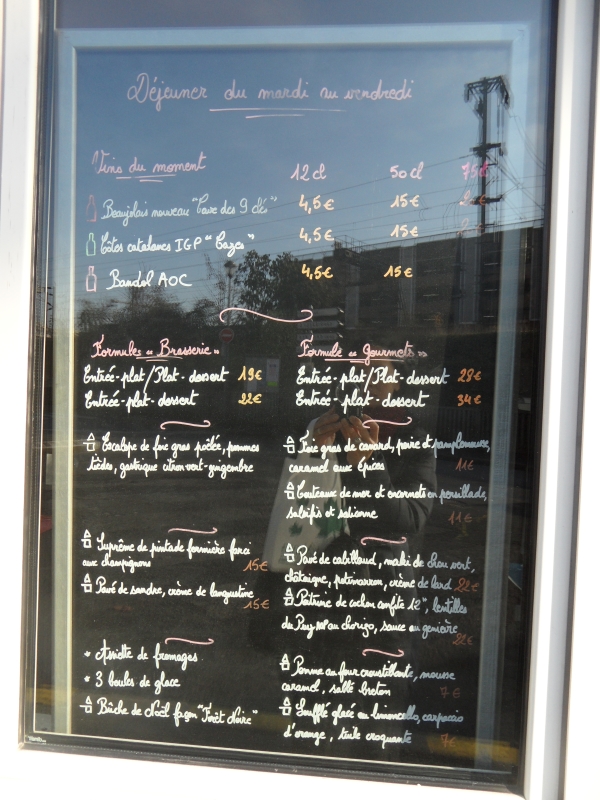 Déjeuner du mardi au vendredi
Vins du moment 12 cl 50 cl 75cl
Beaujolais nouveau "Cave des 9 clés" 4,5€ 15€
Côtes catalanes IGP "Cazes" 4,5€ 15€
Bandol AOC 4,5€ 15€
Formules "Brasserie"
Entrée-plat/Plat-dessert 19€
Entrée-plat-dessert 22€
Escalope de foie gras poêlée, pommes
tièdes, gastrique citron vert-gingembre
Suprême de pintade fermière farci
aux champignons 15€
Pavé de sandre, crème de langoustine
15€
* Assiette de fromages
* 3 boules de glace
Bûche de Noël façon "Forêt Noire"
Formule "Gourmets"
Entrée-plat/Plat-dessert 28€
Entrée-plat-dessert 34€
Foie gras de canard, poire et pamplemousse,
caramel aux épices 11€
Couteaux de mer et encornets en persillade,
salsifis et salicorne 11€
Pavé de cabillaud, maki de chou vert,
châtaigne, potimarron, crème de lard 22€
Poitrine de cochon confite 12h, lentilles
du Puy au chorizo, sauce au genièvre
22€
Pomme au four croustillante, mousse
caramel, sablé breton 7€
Soufflé glacé au limoncello, carpaccio
d'orange, tuile croquante 7€